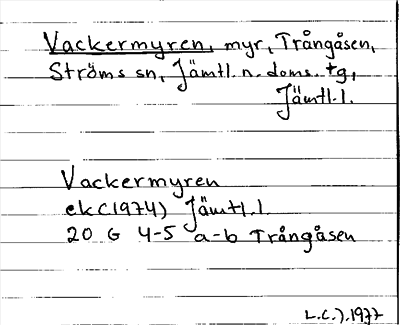 Vackermyren, myr, Trångåsen,
Ströms sn, Jämtl. n. doms. tg,
Jämtl. l.
Vackermyren
ek (1974) Jämtl. l.
20 G 4-5 a-b Trångåsen
L.C.J. 1977